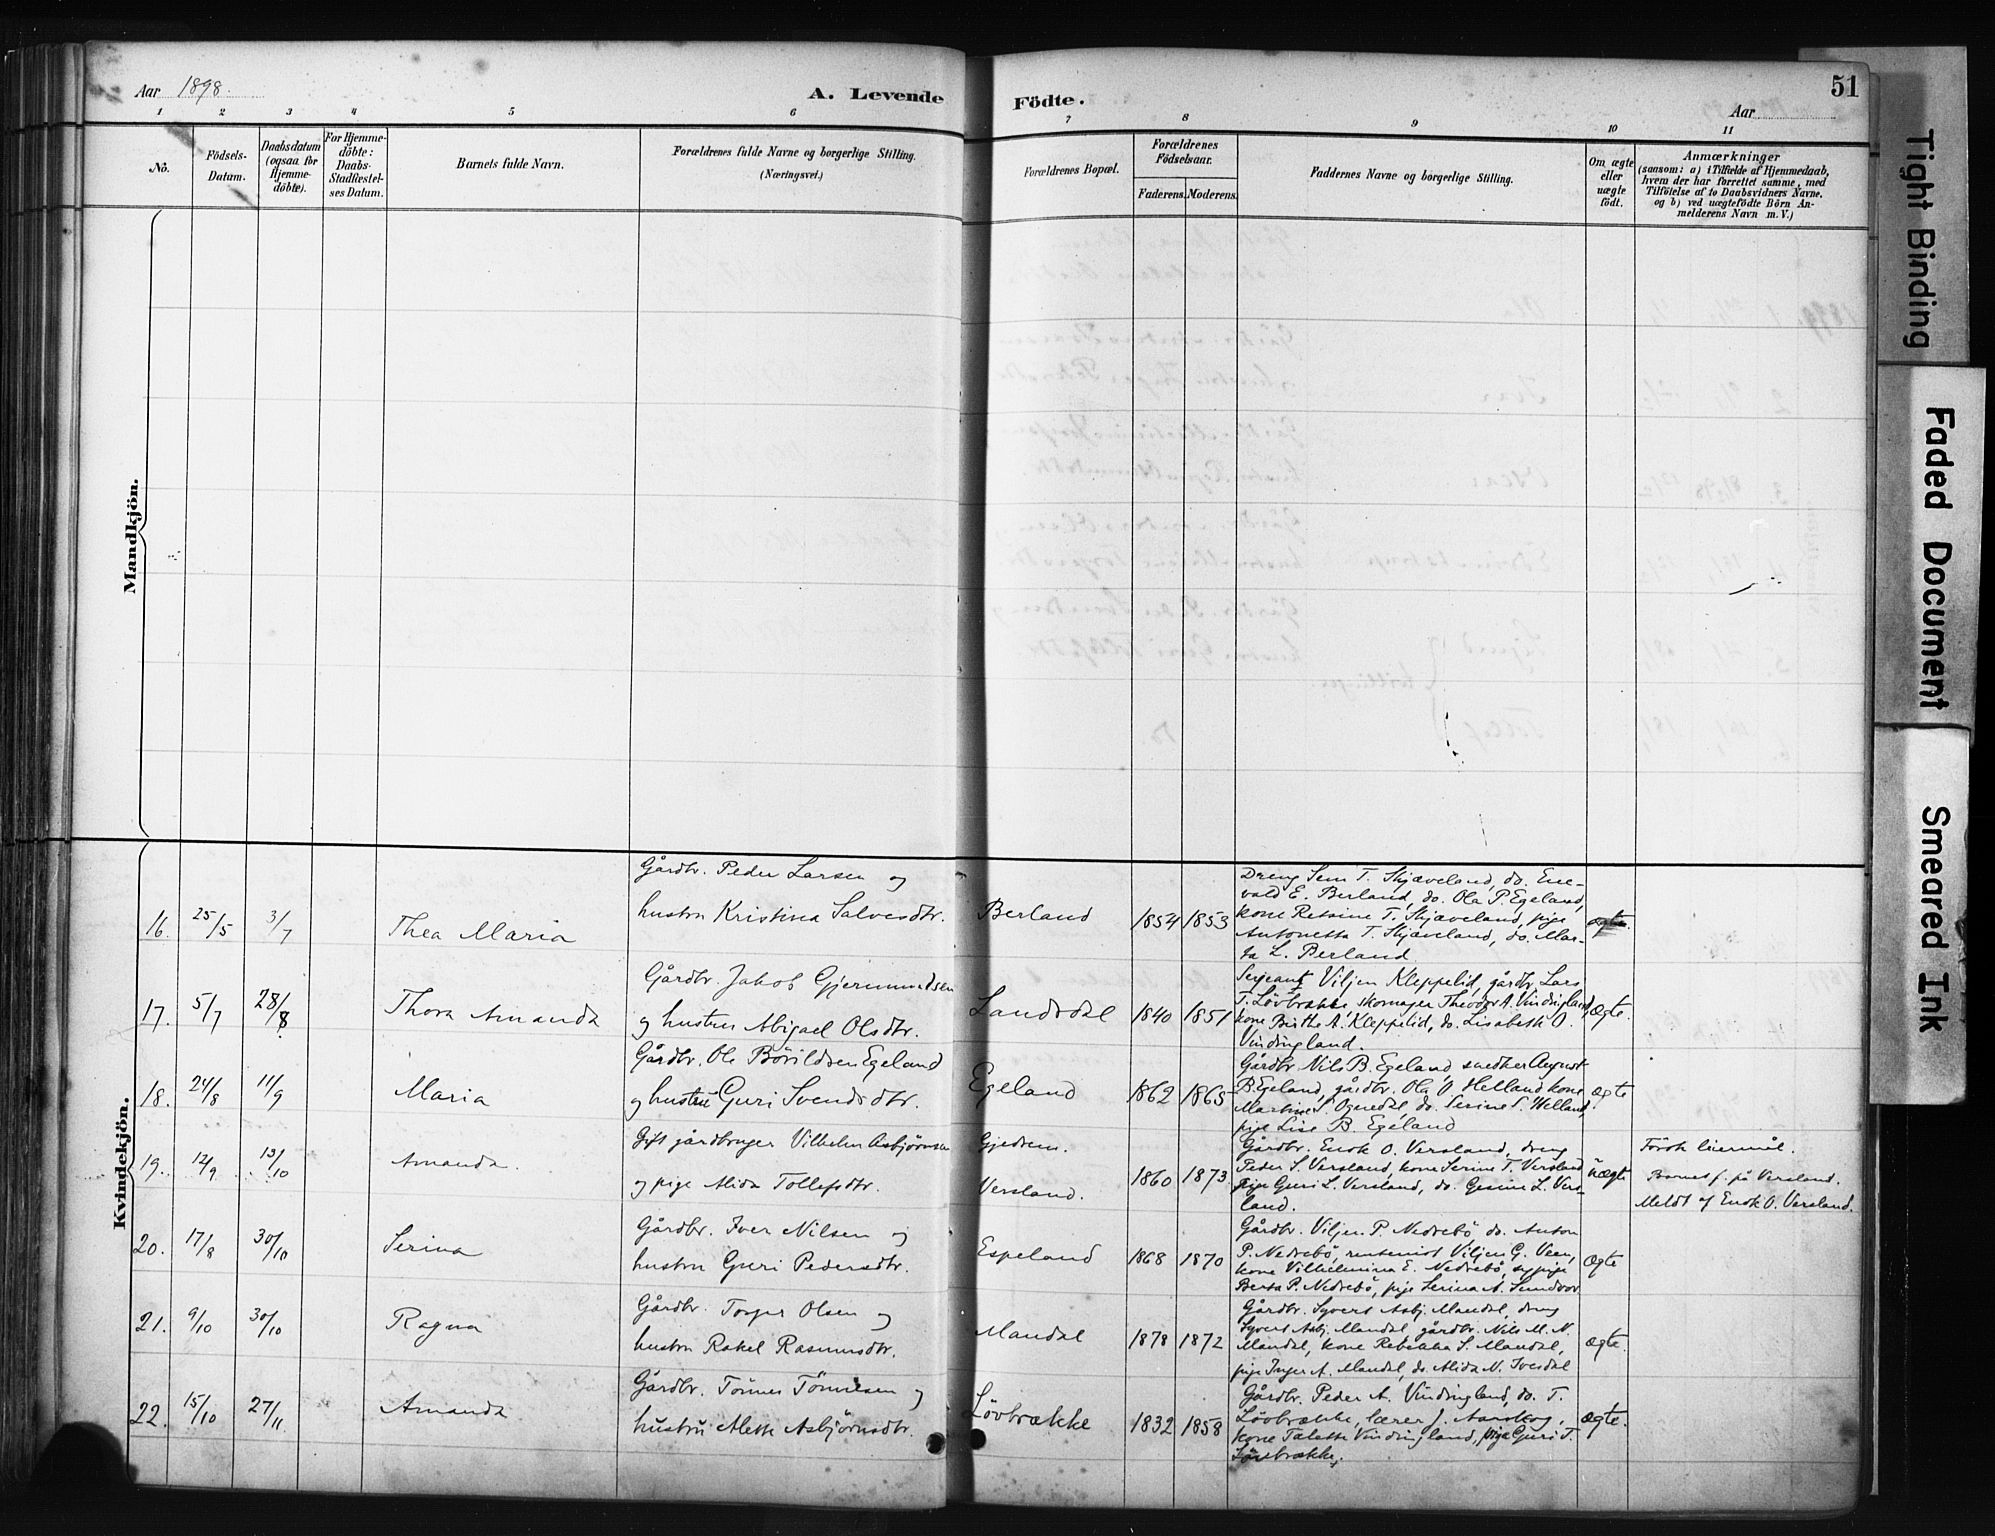 Aar 1898.
A. Levende
Födte.
Aar
51
1 2 3 4 5 6 7 8 9 10 11
No.
Födsels-
Datum.
Daabsdatum
(ogsaa for
Hjemme-
döbte).
For Hjemme-
döbte:
Daabs-
Stadfæstel-
ses Datum.
Barnets fulde Navn.
Forældrenes fulde Navne og borgerlige Stilling.
(Næringsvei.)
Forældrenes Bopæl.
Forældrenes
Födselsaar.
Faderens.
Moderens.
Faddernes Navne og borgerlige Stilling.
Om ægte
eller
uægte
födt.
Anmærkninger
(saasom: a) i Tilfælde af Hjemmedaab,
hvem der har forrettet samme, med
Tilföielse af to Daabsvidners Navne.
og b) ved uægtefödte Börn An-
melderens Navn m. V.)
Mandkjön.
Kvindekjön.
16. 25/5 3/7 Thea Maria
Gårdbr. Peder Larsen og
hustru Kristina Salvesdtr.
Berland 1854 1853
Dreng Sem T. Skjæveland, do. Ene-
vald E. Berland, do. Ola P. Egeland,
kone Retsine T. Skjæveland, pige
Antonetta T. Skjæveland, do. Mar-
ta L. Berland
ægte.
17. 5/7 28/8 Thora Amanda
Gårdbr. Jakob Gjermundsen
og hustru Abigael Olsdtr.
Landsdal 1840 1851
Sergeant Viljen Kleppelid, gårdbr. Lars
T. Lövbrække skomager Theodor A. Vindingland,
kone Birthe A. Kleppelid, do. Lisabeth O.
Vindingland.
ægte.
18. 24/8 11/9 Maria
Gårdbr. Ole Börildsen Egeland
og hustru Guri Svendsdtr.
Egeland 1862 1865
Gårdbr. Nils B. Egeland snedker August
B. Egeland, gårdbr. Ola O. Helland kone
Martine S. Ognedal, do. Serine S. Helland,
pige Lise B. Egeland
ægte
19. 12/9 13/10 Amanda.
Gift gårdbruger Vilhelm Asbjörnsen
og pige Alida Tollefsdtr.
Gjedrem.
Versland. 1860 1873.
Gårdbr. Enok O. Versland, dreng
Peder S. Versland, kone Serine T. Versland
pige Guri L. Versland, do. Gesine L. Vers-
land.
uægte
Först leiermål.
Barnet f. på Versland.
Meldt af Enok O. Versland.
20. 17/8 30/10 Serina
Gårdbr. Iver Nilsen og
hustru Guri Pedersdtr.
Espeland 1868 1870
Gårdbr. Viljen P. Nedrebö, do. Anton
P. Nedrebö, rentenist Viljen G. Veen,
kone Vilhelmina E. Nedrebö, sypige
Berta P. Nedrebö, pige Serina A. Sundvor
ægte
21. 9/10 30/10 Ragna
Gårdbr. Torger Olsen og
hustru Rakel Rasmusdtr.
Mandal 1878 1872
Gårdbr. Syvert Asbj. Mandal, dreng
Syvert Asbj. Mandal, gårdbr. Nils M. N.
Mandal, kone Rebekka S. Mandal,
pige Inger A. Mandal, do. Alida N. Ivesdal
ægte.
22. 15/10 27/11 Amanda
Gårdbr. Tönnes Tönnesen og
hustru Alette Asbjörnsdtr.
Lövbrække 1832 1858
Gårdbr. Peder A. Vindingland, do. T.
Lövbrække, lærer J. Aarskog,
kone Talette Vindingland, pige Guri T.
Lövbrække,
ægte.
Tight Binding
Faded Document
Smeared Ink